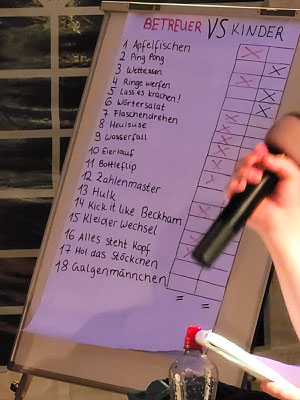 BETREUER VS KINDER
1 Apfelfischen
2 Ping Pong
3 Wettessen
4 Ringe werfen
5 Lass es krachen!
6 Wörtersalat
7 Flaschendrehen
8 Heulsuse
9 Wasserfall
10 Eierlauf
11 Bottleflip
12 Zahlenmaster
13 Hulk
14 Kick it like Beckham
15 Kleider Wechsel
16 Alles steht Kopf
17 Hol das Stöckchen
18 Galgenmännchen
= =